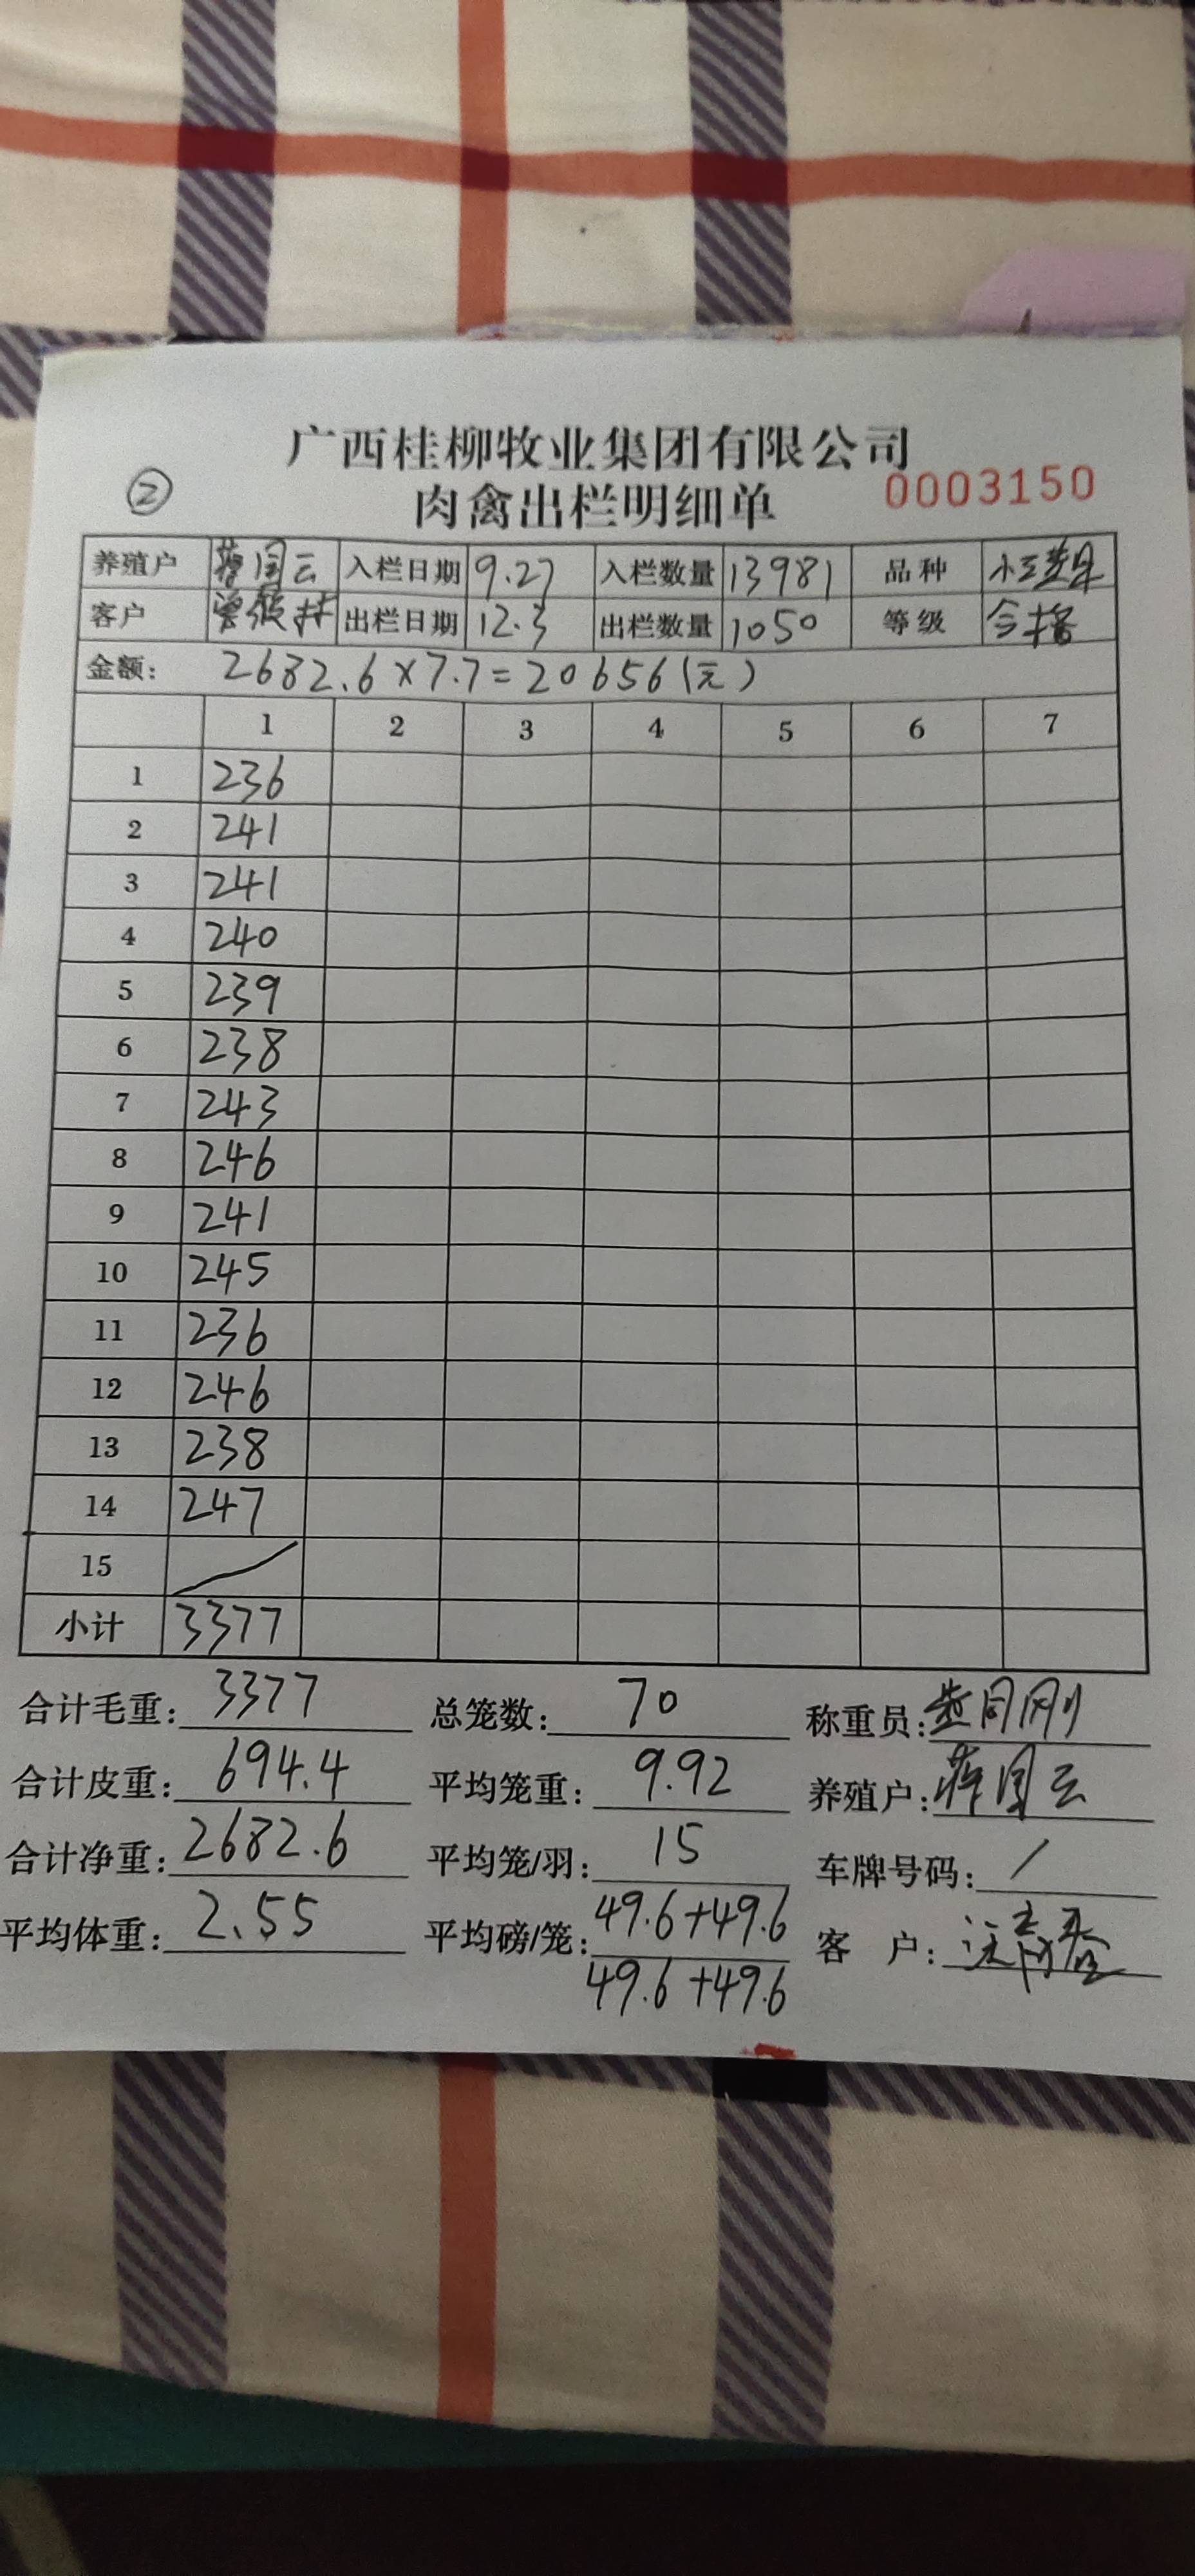 广西桂柳牧业集团有限公司
② 肉禽出栏明细单 0003150
养殖户 蒋国云 入栏日期 9.27 入栏数量 13981 品种
客户 出栏日期 12.3 出栏数量 1050 等级 合格
金额: 2682.6×7.7=20656(元)
1 2 3 4 5 6 7
1 236
2 241
3 241
4 240
5 239
6 238
7 243
8 246
9 241
10 245
11 236
12 246
13 238
14 247
15 /
小计 3377
合计毛重: 3377 总笼数: 70 称重员:
合计皮重: 694.4 平均笼重: 9.92 养殖户: 蒋国云
合计净重: 2682.6 平均笼/羽: 15 车牌号码: /
平均体重: 2.55 平均磅/笼: 49.6+49.6 客 户:
49.6+49.6